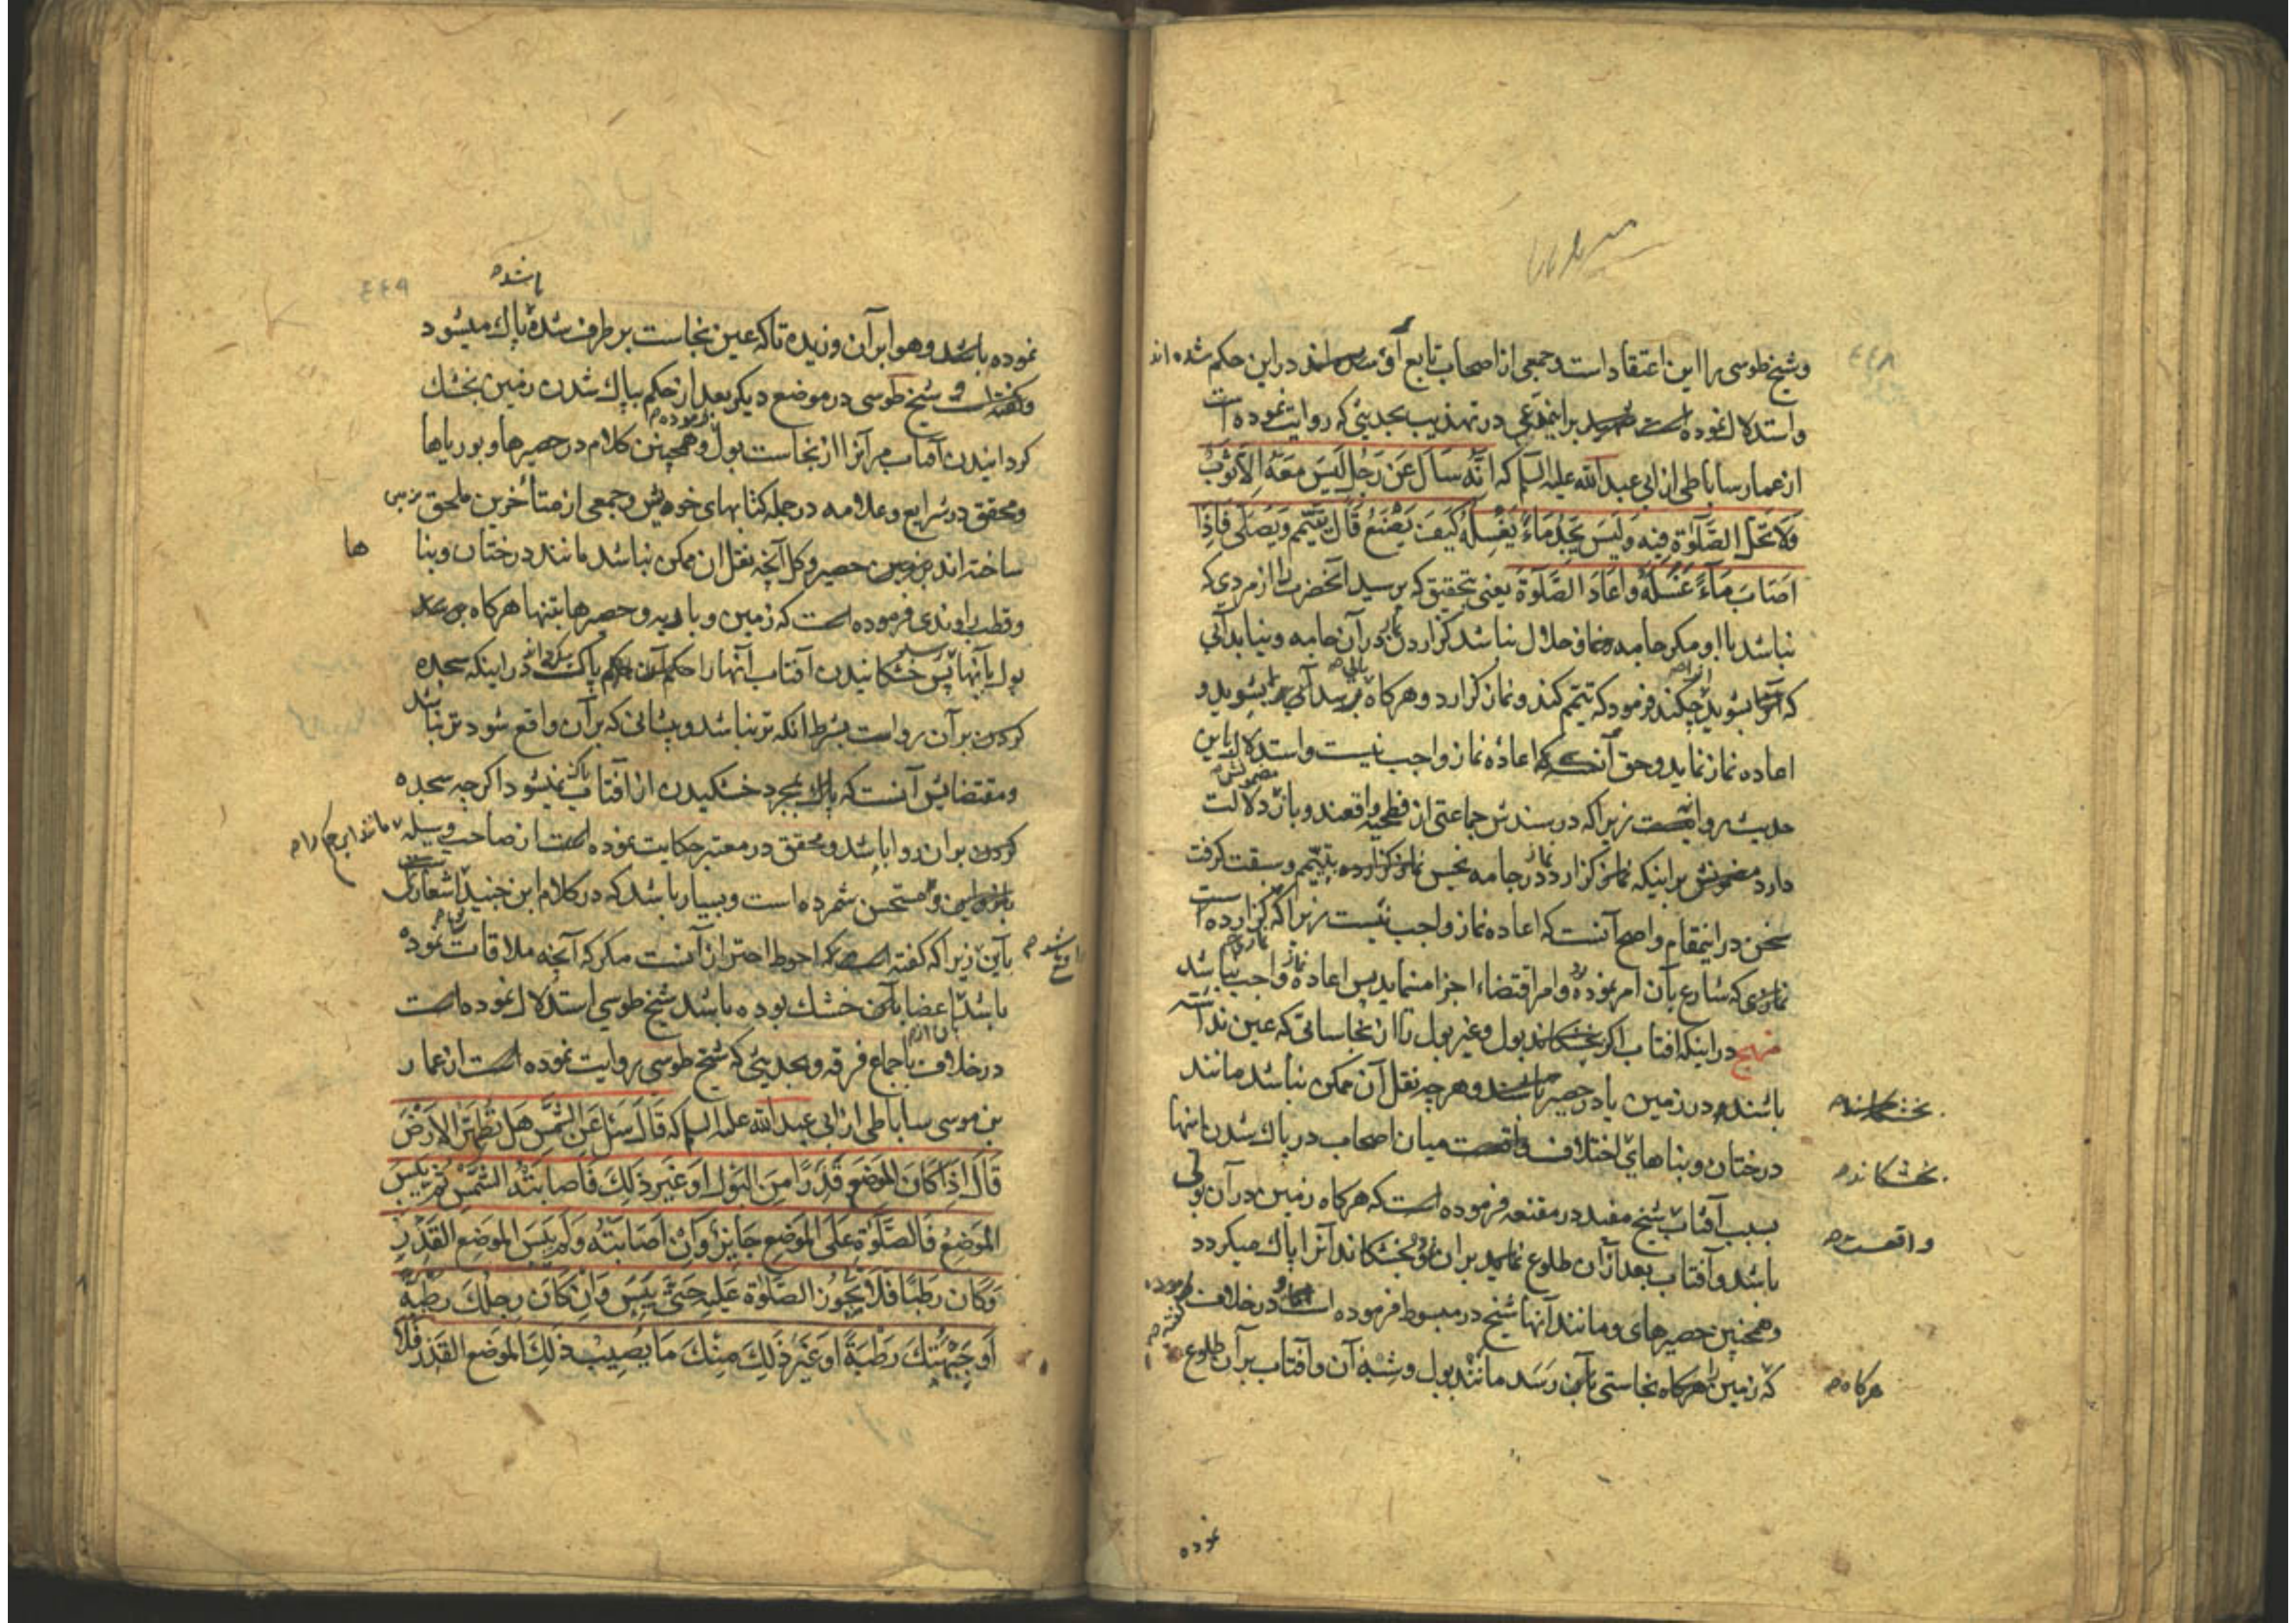 وشیخ طوسی را این اعتقاد است وجمعی از اصحاب تابع او در این حکم شده اند
واستدلال نموده است براینمدعی در تهذیب بحدیثی که روایت نموده است
از عمار ساباطی از ابی عبدالله علیه السلم که اَنَّهُ سَاَلَ عَن رَجُلٍ لَیسَ مَعَهُ اِلاّ ثَوبٌ
وَلاَ تَحِلُّ الصَّلٰوةُ فِیهِ وَلَیسَ یَجِدُ مَاءً یَغسِلُهُ کَیفَ یَصنَعُ قَالَ یَتَیَمَّم وَیُصَلّی فَاِذَا
اَصَابَ مَاءً غَسَلَهُ وَاَعَادَ الصَّلٰوةَ یعنی بتحقیق که پرسید آنحضرت را از مردی که
نباشد با او مکر جامه وحلال نباشد کزاردن نماز در آن جامه ونیابد آبی
که بشوید چکند فرمود که تیمم کند ونماز کزارد وهرکاه آبی بشوید و
اعاده نماز نماید وحق آنکه اعادهٔ نماز واجب نیست واستدلال باین
حدیث زیرا که در سندش جماعتی از فطحیه واقعند وباز دلالت
دارد مضمونش براینکه نماز کزارد در جامه نجس بتیمم وسبقت کرفت
سخن در اینمقام واصح آنست که اعاده نماز واجب نیست زیرا که کزارده است
نمازی که شارع بآن امر نموده وامر اقتضاء اجزا مینماید پس اعاده نماز واجب نباشد
منهج در اینکه افتاب اکر بخشکاند بول وغیر بول را از نجاساتی که عین نداشته
باشند در زمین یا در حصیر وهرچه نقل آن ممکن نباشد مانند
درختان وبناهای اختلاف میان اصحاب در پاک شدن اینها
بخشکاند
بسبب آفتاب شیخ مفید در مقنعه فرموده است که هرکاه زمین در آن بولی
واقعست
باشد وآفتاب بعد از آن طلوع نماید بران وبخشکاند آنرا پاک میکردد
وهمچنین حصیرهای ومانند آنها شیخ در مبسوط فرموده است ودر خلاف
که زمین را هرکاه نجاستی بآن رسد مانند بول وشبه آن وآفتاب برآن طلوع
هرکاه
نموده
نموده باشد وهوا برآن وزیده تاکه عین نجاست برطرف شده باشد پاک میشود
و شیخ طوسی در موضع دیکر بعد از حکم بپاک شدن زمین بخشک
کردانیدن آفتاب مر آنرا از نجاست بول وهمچنین کلام در حصیرها وبوریاها
ومحقق در شرایع وعلامه در جمله کتابهای خویش وجمعی از متأخرین ملحق
ساخته اند حصیر وکل آنچه نقل ان ممکن نباشد مانند درختان وبناها
وقطب راوندی فرموده است که زمین وباریه وحصرها بتنها هرکاه
بول بآنها پس خشکانیدن آفتاب آنها را حکم پاک در اینکه سجده
کردن برآن رواست بشرط آنکه تر نباشد وپیشانی که برآن واقع شود تر نباشد
ومقتضایش آنست که بمجرد خشکیدن از افتاب پاک نمیشود اکرچه سجده
کردن بران روا باشد ومحقق در معتبر حکایت نموده است از صاحب وسیله
ومستحسن شمرده است وبسیار باشد که در کلام ابن جنید اشعاری
باین زیرا که کفته است که احوط احتراز آنست مکر که آنچه ملاقات نموده
باشد اعضا بآن خشک بوده باشد شیخ طوسی استدلال نموده است
در خلاف باجماع فرقه وبحدیثی که شیخ طوسی روایت نموده است از عمار
بن موسی ساباطی از ابی عبدالله علیه السلم که قَالَ سُئِلَ عَنِ الشَّمسِ هَل تُطَهِّرُ الاَرضَ
قَالَ اِذَا کَانَ المَوضِعُ قَذِرًا مِنَ البَولِ اَو غَیرِ ذٰلِکَ فَاَصَابَتهُ الشَّمسُ ثُمَّ یَبِسَ
المَوضِعُ فَالصَّلٰوةُ عَلَی المَوضِعِ جَایِزٌ وَاِن اَصَابَتهُ وَلَم یَیبَسِ المَوضِعُ القَذِرُ
وَکَانَ رَطبًا فَلاَ یَجُوزُ الصَّلٰوة عَلَیهِ حَتّی یَیبَسَ وَاِن کَانَ رِجلُکَ رَطبَةً
اَو جَبهَتُکَ رَطبَةً اَو غَیرُ ذٰلِکَ مِنکَ مَا یُصِیبُ ذٰلِکَ المَوضِعَ القَذِرَ فَلاَ